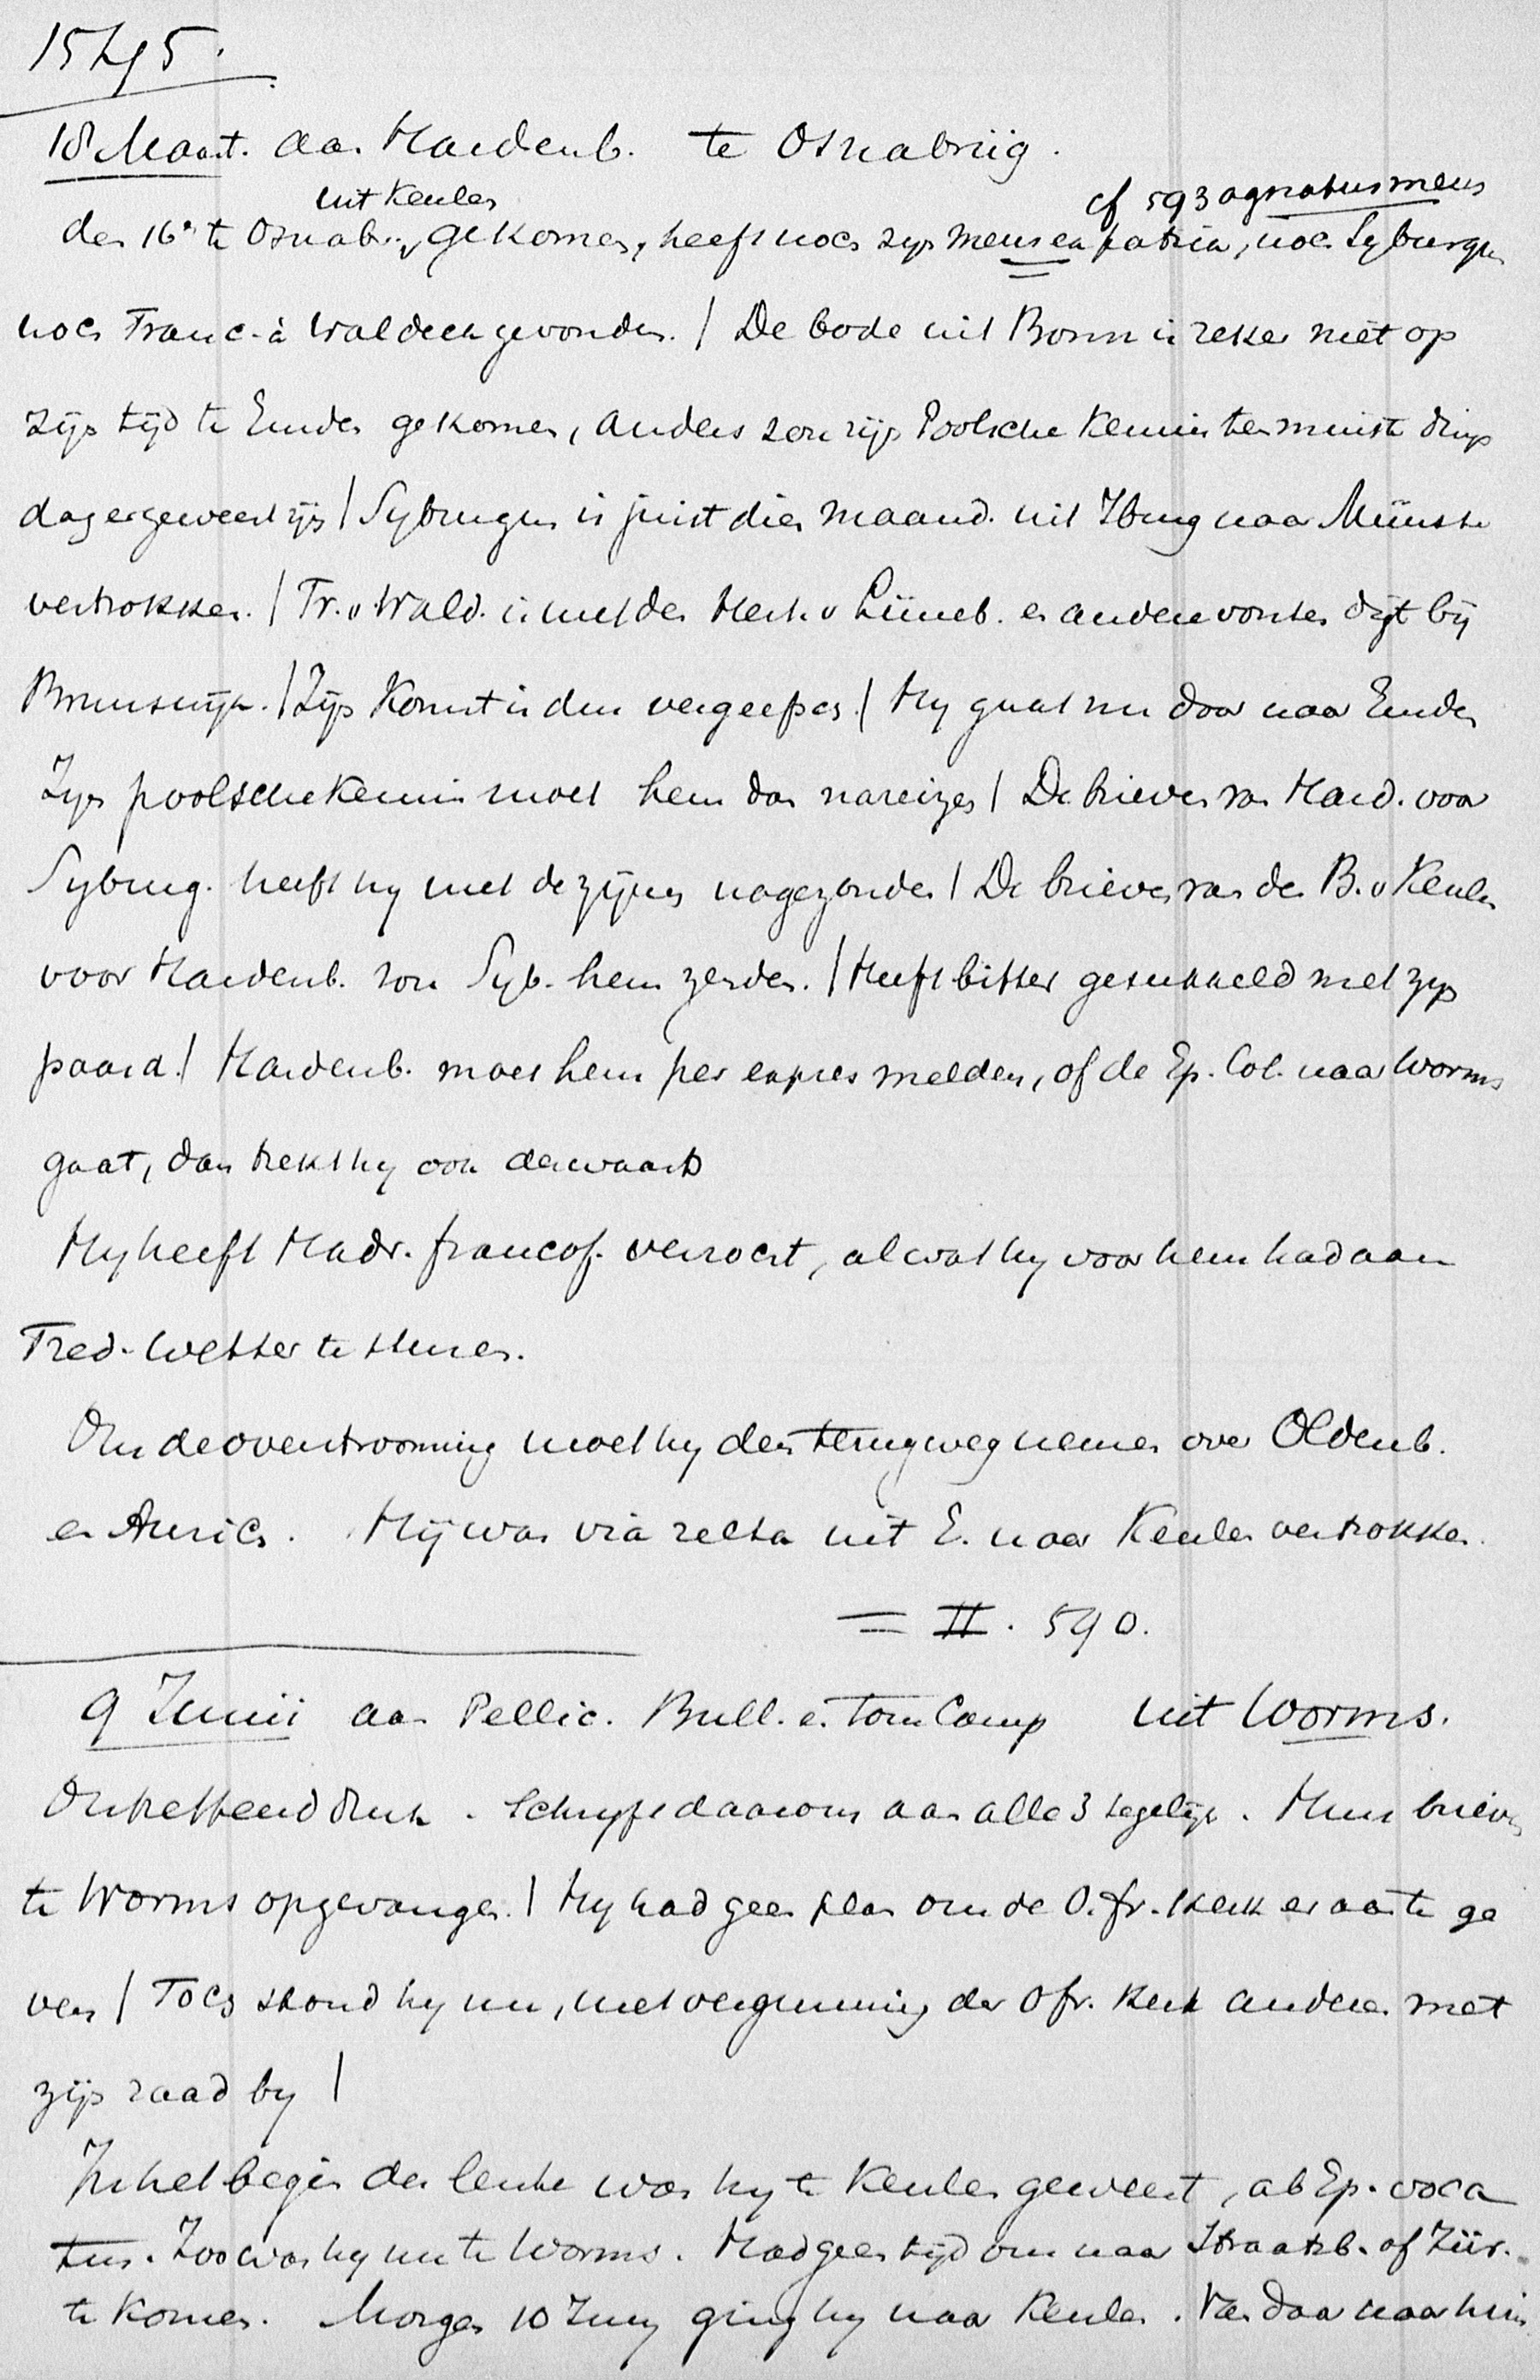 1545.
18 Maart. aan Hardenb. te Osnabrüg.
uit Keulen
cf 593 agnatus meus
den 16n te Osnabrug gekomen, heeft noch zijn mensen patria, noch Syburgen
noch Franc. à Waldeck gevonden. / De bode uit Bonn is zeker niet op
zijn tijd te Emden gekomen, anders zou zijn Poolsche kennis ten minste dinsdag
dag er geweest zijn / Syburgen is juist dien maand. uit Iburg naar Münster
vertrokken. / Fr. v. Wald. is met den Hert. v Lüneb. en andere vorsten digt bij
Brunswijk. / Zijn komst is dus vergeefsch. / Hij gaat nu door naar Emden
Zijn poolsche kennis moet hem dan nareizen / De brieven van Hard. voor
Syburg. heeft hij met de zijnen nagezonden / De brieven van den B. v Keulen
voor Hardenb. zou Syb. hem zenden. / Heeft bitter gesukkeld met zijn
paard. / Hardenb. moet hem per expres melden, of de Ep. Col. naar Worms
gaat, dan trekt hij ook derwaarts
Hij heeft Hadr. francof. verzocht, al wat hij voor hem had aan
Fred. Wetter te sturen.
Om de overstrooming moet hij den terugweg nemen over Oldenb.
en Aurich. Hij was via recta uit E. naar Keulen vertrokken.
= II. 590.
9 Junii aan Pellic. Bull. en Tom Camp uit Worms.
Ontzettend druk. Schrijft daarom aan alle 3 tegelijk. Hun brieven
te Worms opgevangen. / Hij had geen plan om de O. fr. kerk er aan te ge
ven / Toch stond hij nu, met vergunning der O fr. kerk anderen met
zijn raad bij /
In het begin der lente was hij te Keulen geweest, ab Ep. voca
tus. Zoo was hij nu te Worms. Had geen tijd om naar Straatsb. of Zür.
te komen. Morgen 10 Juny ging hij naar Keulen. Van daar naar huis